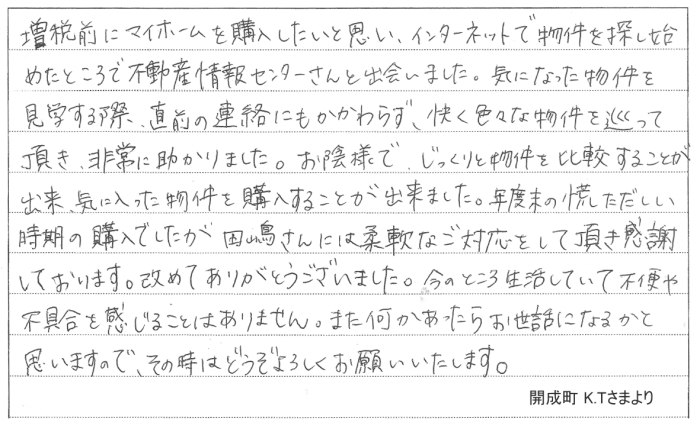 増税前にマイホームを購入したいと思い、インターネットで物件を探し始
めたところで不動産情報センターさんと出会いました。気になった物件を
見学する際、直前の連絡にもかかわらず、快く色々な物件を巡って
頂き、非常に助かりました。お陰様で、じっくりと物件を比較することが
出来、気に入った物件を購入することが出来ました。年度末の慌ただしい
時期の購入でしたが田嶋さんには柔軟なご対応をして頂き感謝
しております。改めてありがとうございました。今のところ生活していて不便や
不具合を感じることはありません。また何かあったらお世話になるかと
思いますので、その時はどうぞよろしくお願いいたします。
開成町 K.Tさまより